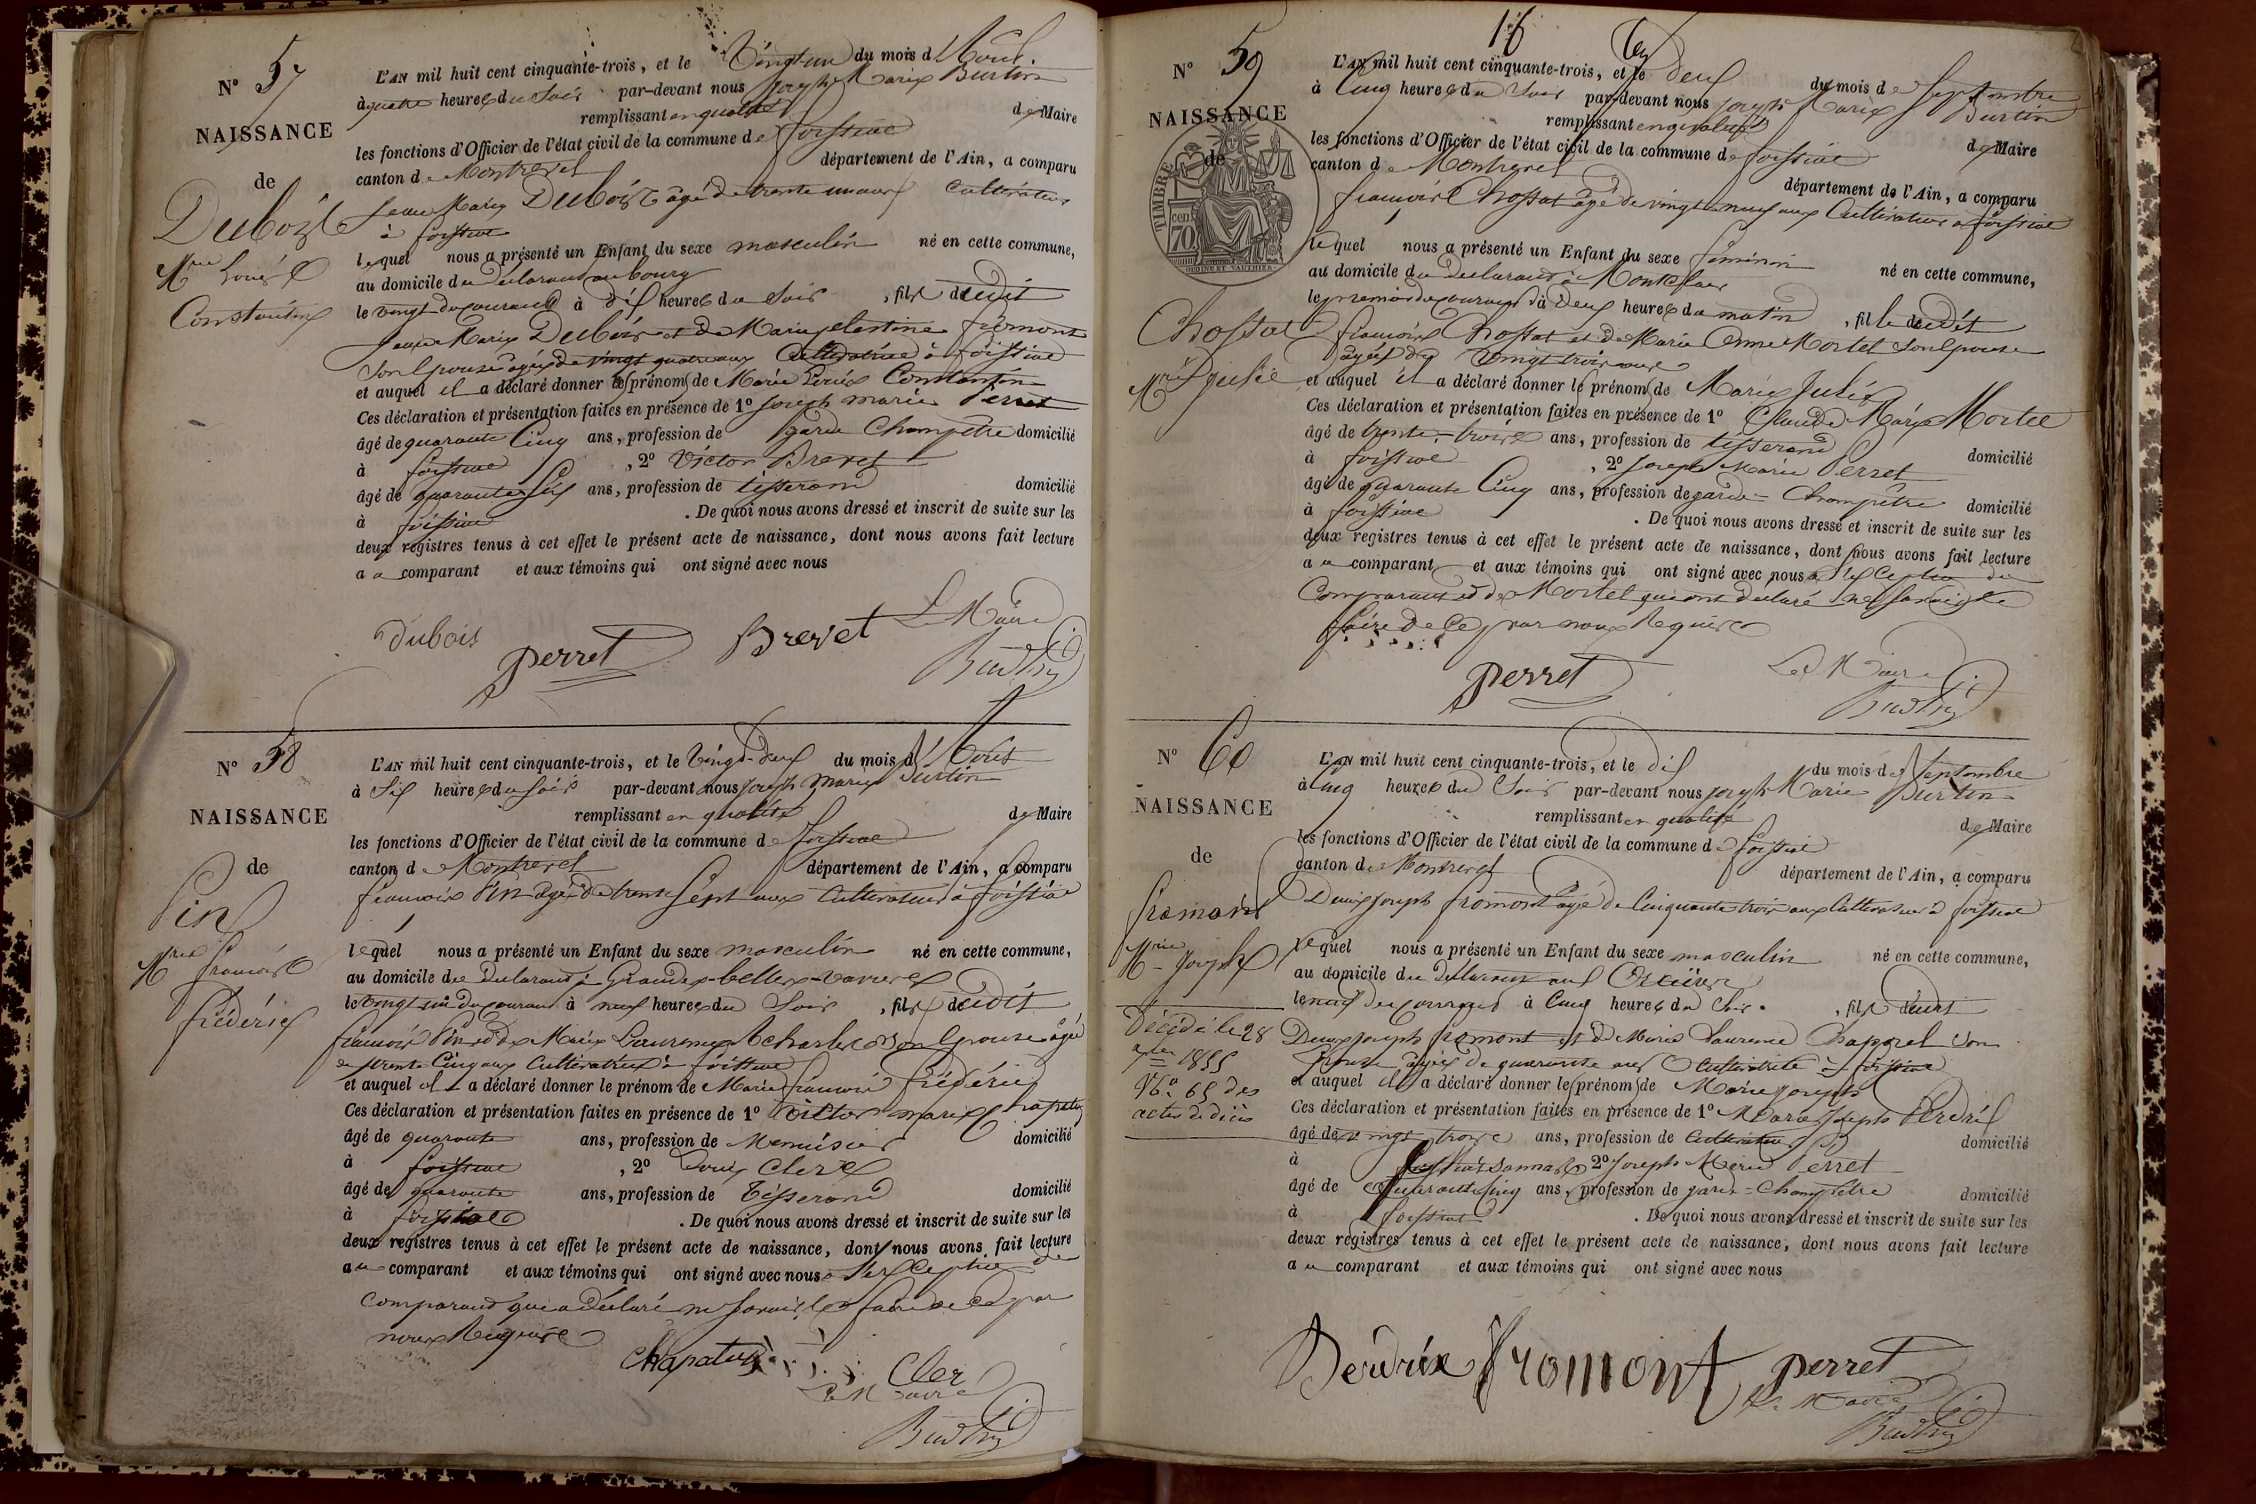 N° 57
NAISSANCE
de
Dubois
Mrie Louis
Constantin
L'AN mil huit cent cinquante-trois, et le Vingt-un du mois d'Août.
à quatre heures du Soir par-devant nous Joseph Marie Burtin
remplissant en qualité de Maire
les fonctions d'Officier de l'état civil de la commune de foissiat
canton de Montrevel département de l'Ain, a comparu
Jean Marie Dubois âgé de trente un ans Cultivateur
à foissiat
lequel nous a présenté un Enfant du sexe masculin né en cette commune,
au domicile du Déclarant au bourg
le vingt du courant à dix heures du Soir, fils dudit
Jean Marie Dubois et de Marie Celestine fromont
Son Epouse âgée de vingt quatre ans Cultivatrice à foissiat
et auquel il a déclaré donner les prénoms de Marie Louis Constantin
Ces déclaration et présentation faites en présence de 1° Joseph Marie Perret
âgé de quarante Cinq ans, profession de garde Champêtre domicilié
à foissiat, 2° Victor Brevet
âgé de quarante six ans, profession de tisserand domicilié
à foissiat. De quoi nous avons dressé et inscrit de suite sur les
deux registres tenus à cet effet le présent acte de naissance, dont nous avons fait lecture
au comparant et aux témoins qui ont signé avec nous
Le Maire
Dubois perret Brevet Burtin
N° 58
NAISSANCE
de
Pin
Mrie François
Frédéric
L'AN mil huit cent cinquante-trois, et le Vingt-deux du mois d'Août
à Six heures du Soir par-devant nous Joseph Marie Burtin
remplissant en qualité de Maire
les fonctions d'Officier de l'état civil de la commune de foissiat
canton de Montrevel département de l'Ain, a comparu
françois Pin âgé de trente Sept ans Cultivateur à foissiat
lequel nous a présenté un Enfant du sexe masculin né en cette commune,
au domicile du Déclarant
le vingt un du courant à neuf heures du Soir, fils dudit
françois Pin et de Marie Laurence Son Epouse âgée
de trente Cinq ans Cultivatrice à foissiat
et auquel il a déclaré donner le prénom de Marie françois frédéric
Ces déclaration et présentation faites en présence de 1° Victor marie Chapatu
âgé de quarante ans, profession de Menuisier domicilié
à foissiat, 2° Louis Clerc
âgé de quarante ans, profession de Tisserand domicilié
à foissiat. De quoi nous avons dressé et inscrit de suite sur les
deux registres tenus à cet effet le présent acte de naissance, dont nous avons fait lecture
au comparant et aux témoins qui ont signé avec nous à l'exception du
comparant qui a déclaré ne savoir le faire de ce par
nous Requis
Cler
Le Maire
Burtin
16
N° 59
NAISSANCE
de
TIMBRE
70 cen
Chossat
Mrie Julie
L'AN mil huit cent cinquante-trois, et le deux du mois de Septembre
à Cinq heures du Soir par-devant nous Joseph Marie Burtin
remplissant en qualité de Maire
les fonctions d'Officier de l'état civil de la commune de foissiat
canton de Montrevel département de l'Ain, a comparu
françois Chossat âgé de vingt neuf ans Cultivateur à foissiat
lequel nous a présenté un Enfant du sexe féminin né en cette commune,
au domicile du Déclarant à
le premier du courant à Deux heures du matin, fille dudit
françois Chossat et de Marie Anne Mortel Son Epouse
âgée de Vingt trois ans
et auquel il a déclaré donner les prénoms de Marie Julie
Ces déclaration et présentation faites en présence de 1° Claude Marie Mortel
âgé de trente-trois ans, profession de tisserand domicilié
à foissiat, 2° Joseph Marie Perret
âgé de quarante Cinq ans, profession de garde-Champêtre domicilié
à foissiat. De quoi nous avons dressé et inscrit de suite sur les
deux registres tenus à cet effet le présent acte de naissance, dont nous avons fait lecture
au comparant et aux témoins qui ont signé avec nous à l'exception du
Comparant et de Mortel qui ont déclaré ne savoir le
faire de ce par nous Requis
perret
Le Maire
Burtin
N° 60
NAISSANCE
de
fromont
Mrie Joseph
Décédé le 28
1855
N° 65 des
actes de décès
L'AN mil huit cent cinquante-trois, et le dix du mois de Septembre
à Cinq heures du Soir par-devant nous Joseph Marie Burtin
remplissant en qualité de Maire
les fonctions d'Officier de l'état civil de la commune de foissiat
canton de Montrevel département de l'Ain, a comparu
Denis Joseph fromont âgé de Cinquante trois ans Cultivateur à foissiat
lequel nous a présenté un Enfant du sexe masculin né en cette commune,
au domicile du Déclarant aux
le neuf du courant à Cinq heures du Soir, fils dudit
Denis Joseph fromont et de Marie Laurence Son
Epouse âgée de quarante ans Cultivatrice à foissiat
et auquel il a déclaré donner les prénoms de Marie Joseph
Ces déclaration et présentation faites en présence de 1° Marie Joseph Perdrix
âgé de vingt trois ans, profession de Cultivateur domicilié
à 2° Joseph Marie Perret
âgé de Quarante Cinq ans, profession de garde-Champêtre domicilié
à foissiat. De quoi nous avons dressé et inscrit de suite sur les
deux registres tenus à cet effet le présent acte de naissance, dont nous avons fait lecture
au comparant et aux témoins qui ont signé avec nous
Perdrix fromont perret
Le Maire
Burtin